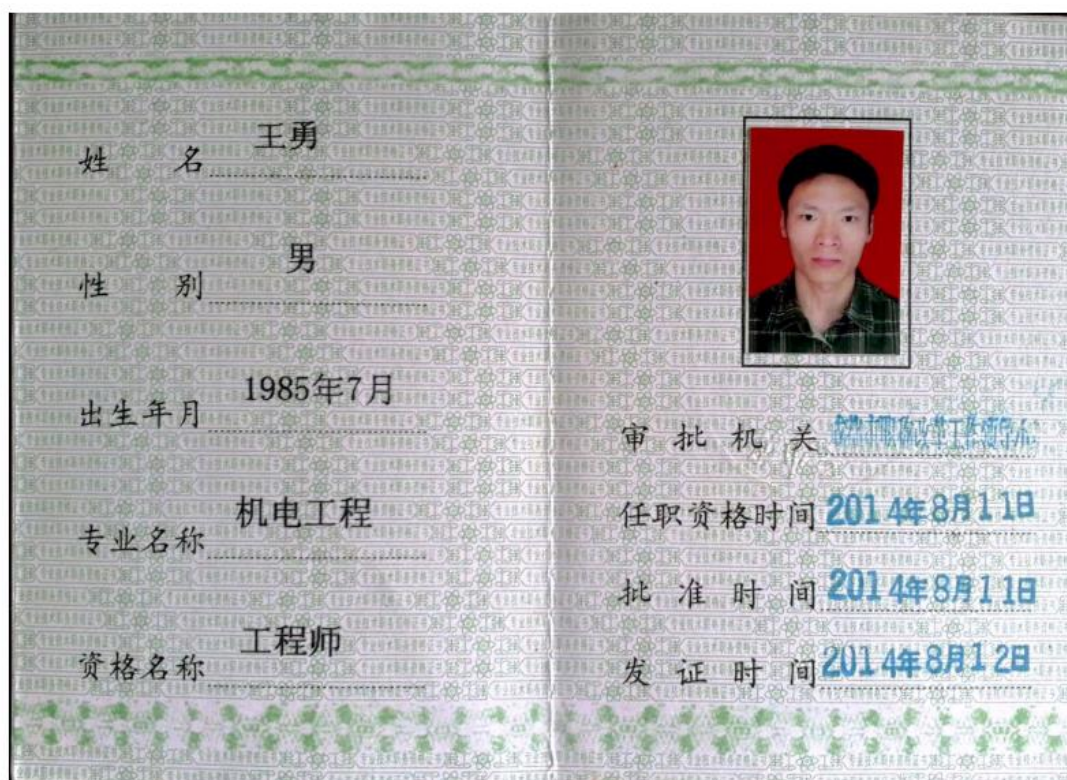 姓名 王勇
性别 男
出生年月 1985年7月
专业名称 机电工程
资格名称 工程师
审批机关 市职称改革工作领导小
任职资格时间 2014年8月11日
批准时间 2014年8月11日
发证时间 2014年8月12日